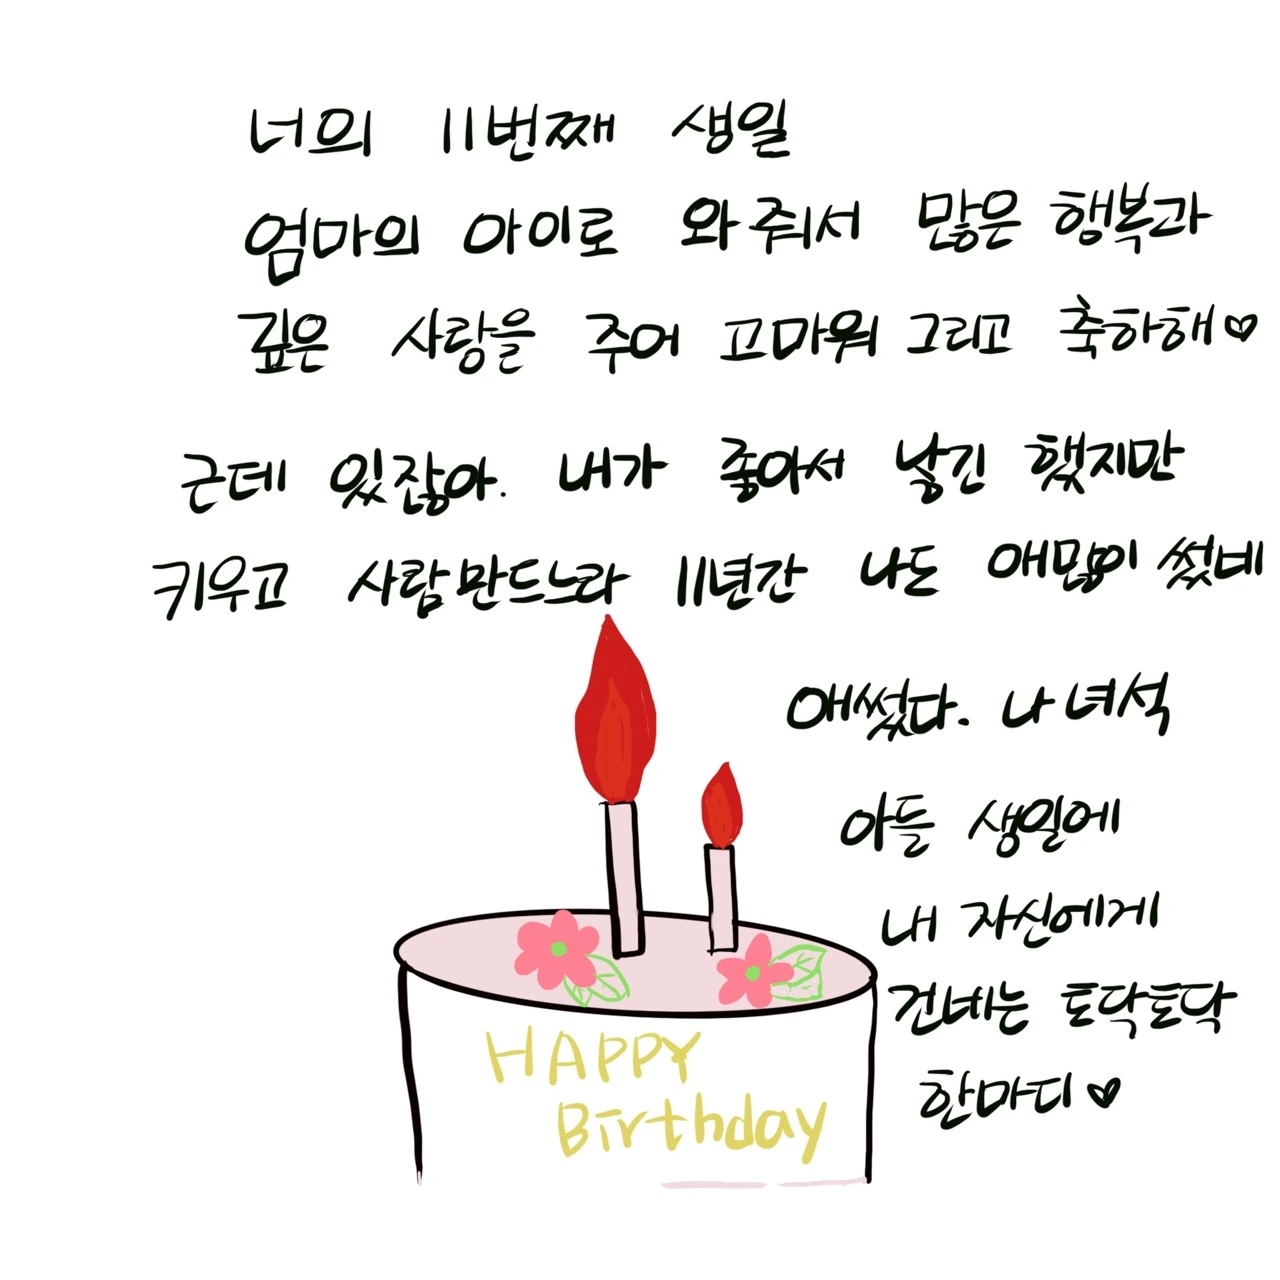 너의 11번째 생일
엄마의 아이로 와줘서 많은 행복과
깊은 사랑을 주어 고마워 그리고 축하해♡
근데 있잖아. 내가 좋아서 낳긴 했지만
키우고 사람만드느라 11년간 나도 애많이 썼네
애썼다. 나 녀석
아들 생일에
내 자신에게
건네는 토닥토닥
한마디♡
HAPPY
Birthday